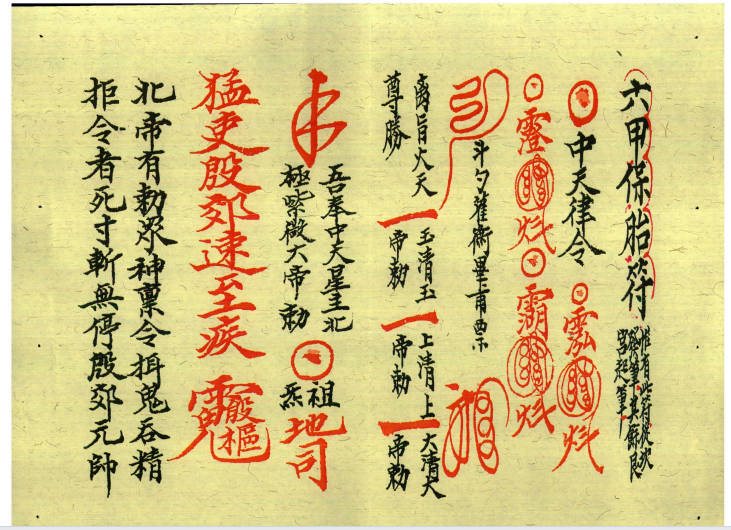 六甲保胎符
惟有此符從坎
發筆其餘艮
宮起筆
中天律令
斗勺
离旨火天
尊勝
玉清玉
帝勅
上清上
帝勅
大清大
帝勅
吾奉中天星主北
極紫微大帝勅
祖
炁
地司
猛吏殷郊速至疾
殷樞
北帝有勅眾神稟令揖鬼吞精
拒令者死寸斬無停殷郊元帥